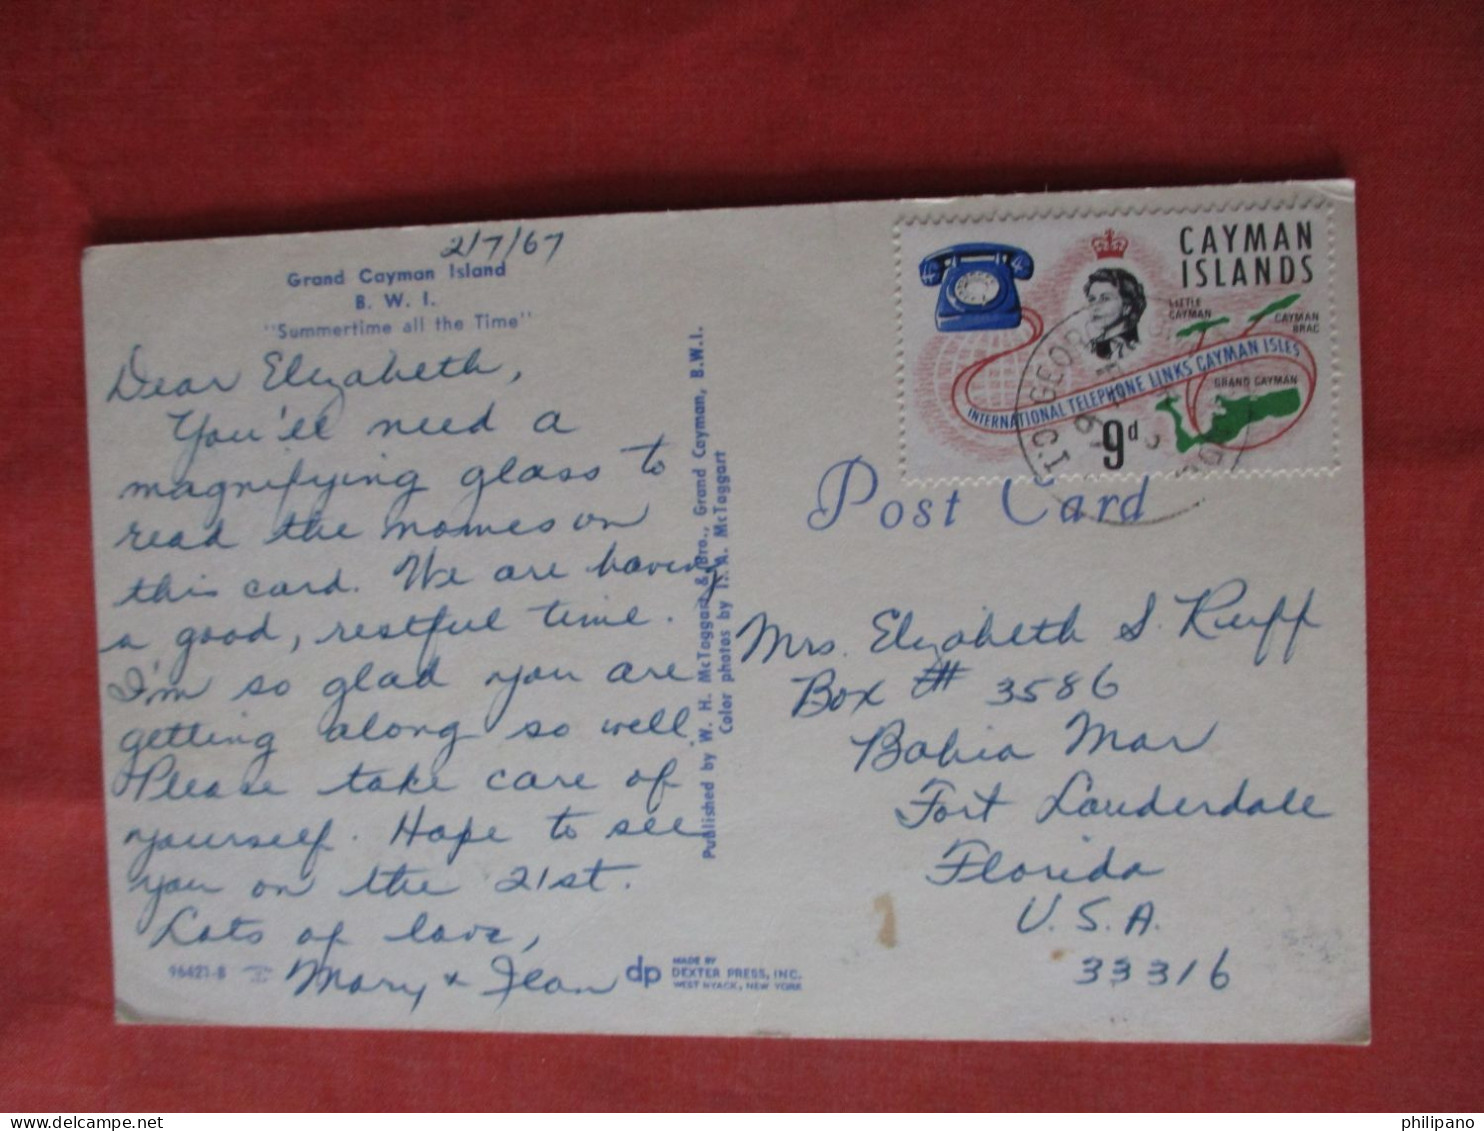 2/7/67
Grand Cayman Island
B. W. I.
"Summertime all the Time"
Dear Elizabeth,
You'll need a
magnifying glass to
read the names on
this card. We are having
a good, restful time.
I'm so glad you are
getting along so well.
Please take care of
yourself. Hope to see
you on the 21st.
Lots of love,
Mary & Jean
96421-B
Published by W. H. McTaggart & Bro., Grand Cayman, B.W.I.
Color photos by McTaggart
dp
MADE BY
DEXTER PRESS, INC.
WEST NYACK, NEW YORK
CAYMAN
ISLANDS
LITTLE
CAYMAN
CAYMAN
BRAC
INTERNATIONAL TELEPHONE LINKS CAYMAN ISLES
GRAND CAYMAN
9d
GEORGE
Post Card
Mrs. Elizabeth S. Ruff
Box # 3586
Bahia Mar
Fort Lauderdale
Florida
U.S.A.
33316
philipano